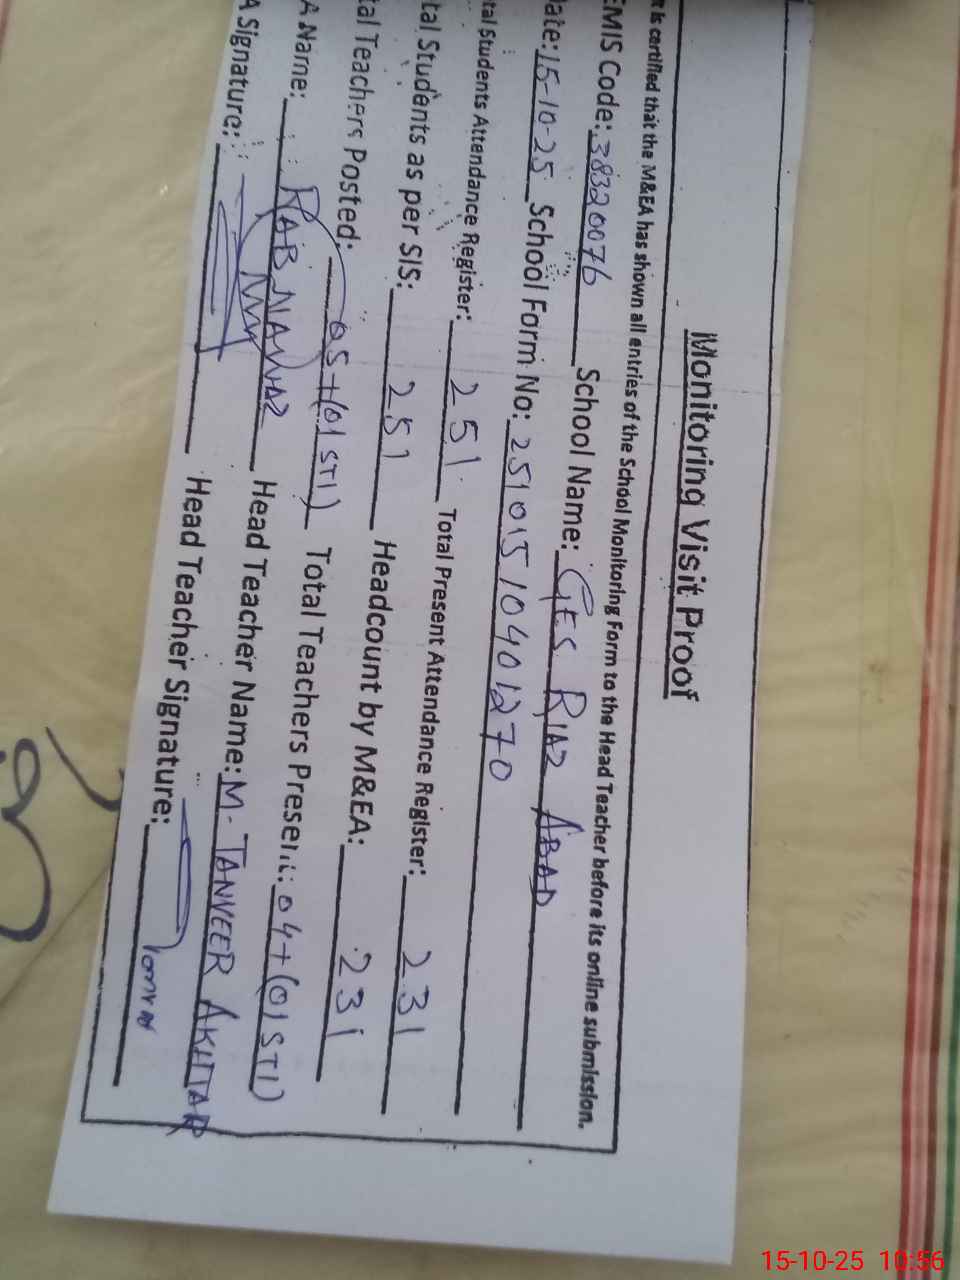 Monitoring Visit Proof
It is certified that the M&EA has shown all entries of the School Monitoring Form to the Head Teacher before its online submission.
EMIS Code: 38320076 School Name: GES RIAZ ABAD
ate: 15-10-25 School Form No: 25101510401270
tal Students Attendance Register: 251 Total Present Attendance Register: 231
tal Students as per SIS: 251 Headcount by M&EA: 231
tal Teachers Posted: 05+(01 STI) Total Teachers Present: 04+(01 STI)
A Name: RAB NAWAZ Head Teacher Name: M. TANVEER AKHTAR
A Signature: Head Teacher Signature:
15-10-25 10:56